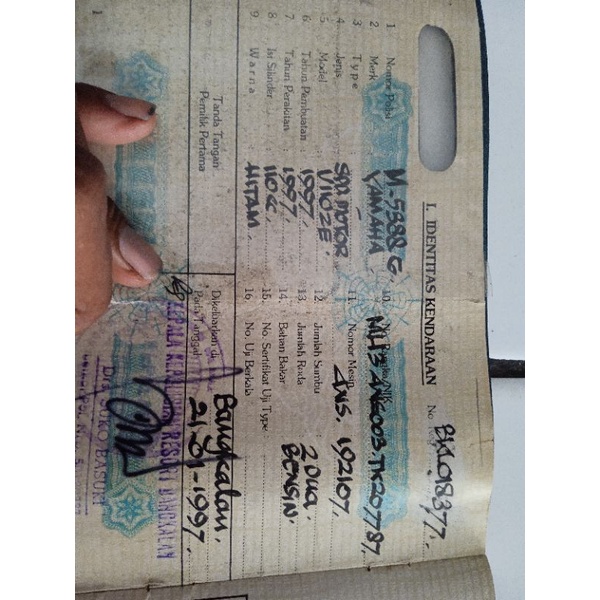 I. IDENTITAS KENDARAAN
No.
1 Nomor Polisi M-5388 G.
2 Merk YAMAHA.
3 Type -
4 Jenis SPD. MOTOR
5 Model V110ZE.
6. Tahun Pembuatan : 1997.
7 Tahun Perakitan : 1997.
8 Isi Silinder 110 CC.
9 Warna HITAM.
10.
11. Nomor Mesin 4NS. 192107.
12. Jumlah Sumbu :
13. Jumlah Roda : 2 Dua.
14. Bahan Bakar BENSIN.
15. No. Sertifikat Uji Type
16. No. Uji Berkala
Tanda Tangan
Pemilik Pertama
Dikeluarkan di Bangkalan.
Pada Tanggal 21-01-1997.